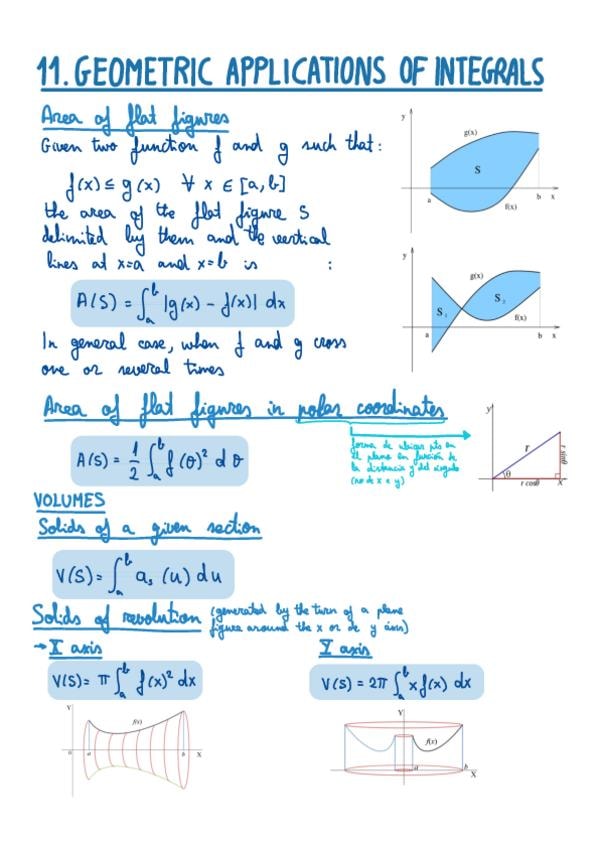 11. GEOMETRIC APPLICATIONS OF INTEGRALS
Area of flat figures
Given two function f and g such that:
f(x) ≤ g(x) ∀ x ∈ [a,b]
the area of the flat figure S
delimited by them and the vertical
lines at x=a and x=b is :
A(S) = ∫ₐᵇ |g(x) - f(x)| dx
In general case, when f and g cross
one or several times
y
g(x)
S
a
f(x)
b x
y
g(x)
S₁
S₂
f(x)
a
b x
Area of flat figures in polar coordinates
A(S) = 1/2 ∫ₐᵇ f(θ)² dθ
forma de ubicar pts en
el plano en función de
la distancia y del ángulo
(no de x e y)
y
r
r sinθ
θ
r cosθ
x
VOLUMES
Solids of a given section
V(S) = ∫ₐᵇ aₛ (u) du
Solids of revolution (generated by the turn of a plane
figure around the x or de y axis)
→ X axis
V(S) = π ∫ₐᵇ f(x)² dx
Y
f(x)
0 a b X
Y axis
V(S) = 2π ∫ₐᵇ x f(x) dx
Y
f(x)
a b
X